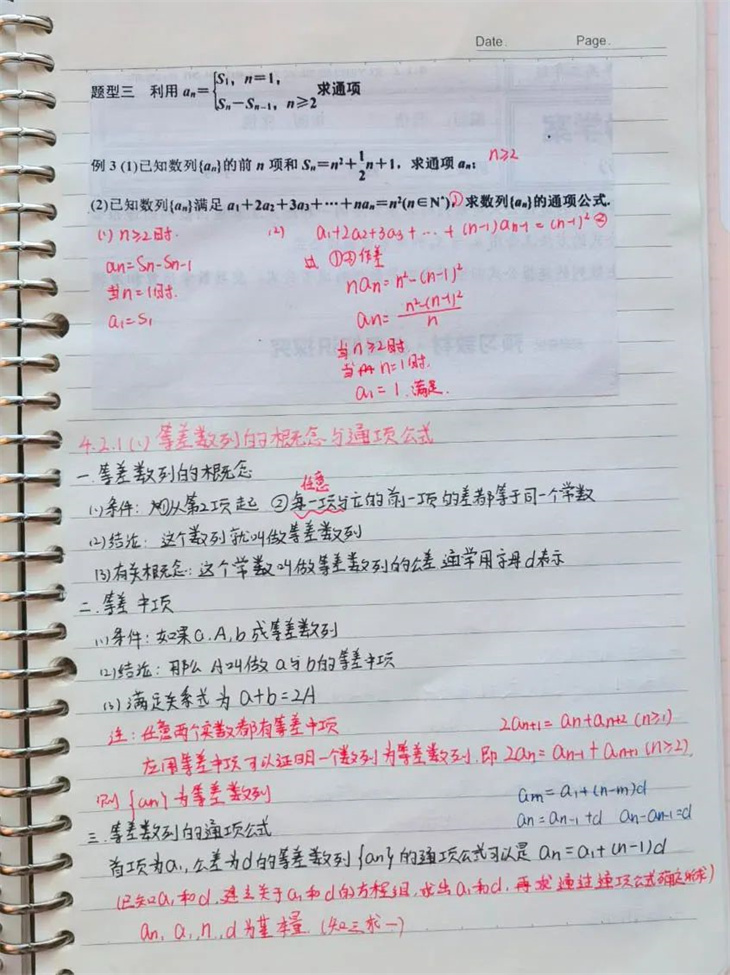 Date.    Page.
题型三 利用 aₙ={S₁, n=1, Sₙ-Sₙ₋₁, n≥2 求通项
例 3 (1)已知数列{aₙ}的前 n 项和 Sₙ=n²+1/2n+1，求通项 aₙ； n≥2
(2)已知数列{aₙ}满足 a₁+2a₂+3a₃+…+naₙ=n²(n∈N*)，① 求数列{aₙ}的通项公式.
(1) n≥2时.
aₙ=Sₙ-Sₙ₋₁
当n=1时.
a₁=S₁
(2) a₁+2a₂+3a₃+…+(n-1)aₙ₋₁=(n-1)² ②
①②作差
naₙ=n²-(n-1)²
aₙ=n²-(n-1)²/n
当n≥2时
当n=1时.
a₁=1.满足.
4.2.1(1) 等差数列的概念与通项公式
一.等差数列的概念
任意
(1)条件: ①从第2项起 ②每一项与它的前一项的差都等于同一个常数
(2)结论: 这个数列就叫做等差数列
(3)有关概念: 这个常数叫做等差数列的公差 通常用字母d表示
二.等差中项
(1)条件: 如果a.A,b成等差数列
(2)结论: 那么A叫做a与b的等差中项
(3)满足关系式为 a+b=2A
注: 任意两个实数都有等差中项 2aₙ₊₁=aₙ+aₙ₊₂(n≥1)
应用等差中项可以证明一个数列为等差数列.即 2aₙ=aₙ₋₁+aₙ₊₁(n≥2)
则{aₙ}为等差数列
aₘ=a₁+(n-m)d
aₙ=aₙ₋₁+d aₙ-aₙ₋₁=d
三.等差数列的通项公式
首项为a₁,公差为d的等差数列{aₙ}的通项公式可以是 aₙ=a₁+(n-1)d
(已知a₁和d,建立关于a₁和d的方程组,求出a₁和d,再求通过通项公式
aₙ,a₁,n,d为基本量.(知三求一)